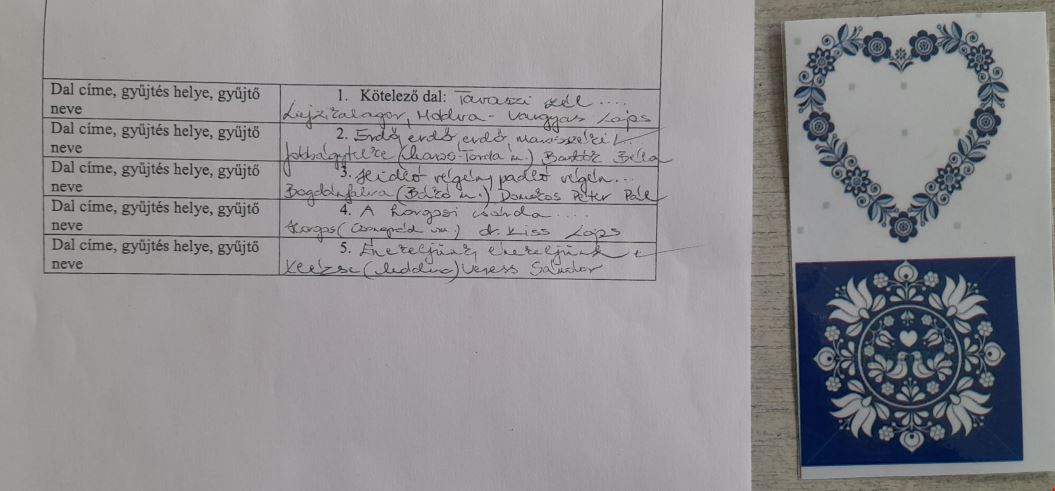 Dal címe, gyűjtés helye, gyűjtő
neve
1. Kötelező dal: Tavaszi szél ....
Moldva - Vargyas Lajos
Dal címe, gyűjtés helye, gyűjtő
neve
2. Erdő, erdő, erdő, marosszéki
Jobbágytelke (Maros-Torda m.) Bartók Béla
Dal címe, gyűjtés helye, gyűjtő
neve
3. Hidló végén, padló végén...
Bogdánfalva (Bákó m.) Domokos Péter Pál
Dal címe, gyűjtés helye, gyűjtő
neve
4. A horgosi csárda ....
Horgos (Csongrád m.) dr. Kiss Lajos
Dal címe, gyűjtés helye, gyűjtő
neve
5. Énekeljünk, énekeljünk
Klézse (Moldva) Veress Sándor